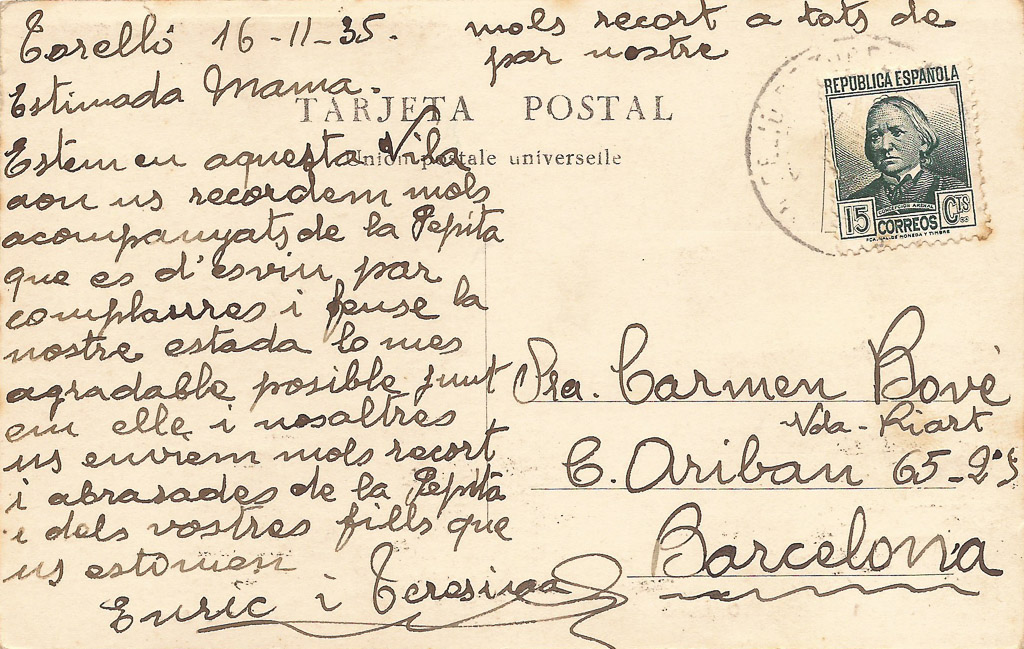 Torelló 16-11-35.
Estimada Mama.
Estem en aquesta Vila
aon us recordem mols
acompanyats de la Pepita
que es d'esviu par
complaures i feuse la
nostre estada lo mes
agradable posible junt
em elle i nosaltres
us enviem mols recort
i abrasades de la Pepita
i dels vostres fills que
us estimen
Enric i Teresina
mols recort a tots de
par nostre
TARJETA POSTAL
Union postale universelle
REPUBLICA ESPAÑOLA
CONCEPCION ARENAL
15 CORREOS CTS
F.C.A. NAL. DE MONEDA Y TIMBRE
Sra. Carmen Bové
Vda-Riart
C. Aribau 65-2º
Barcelona